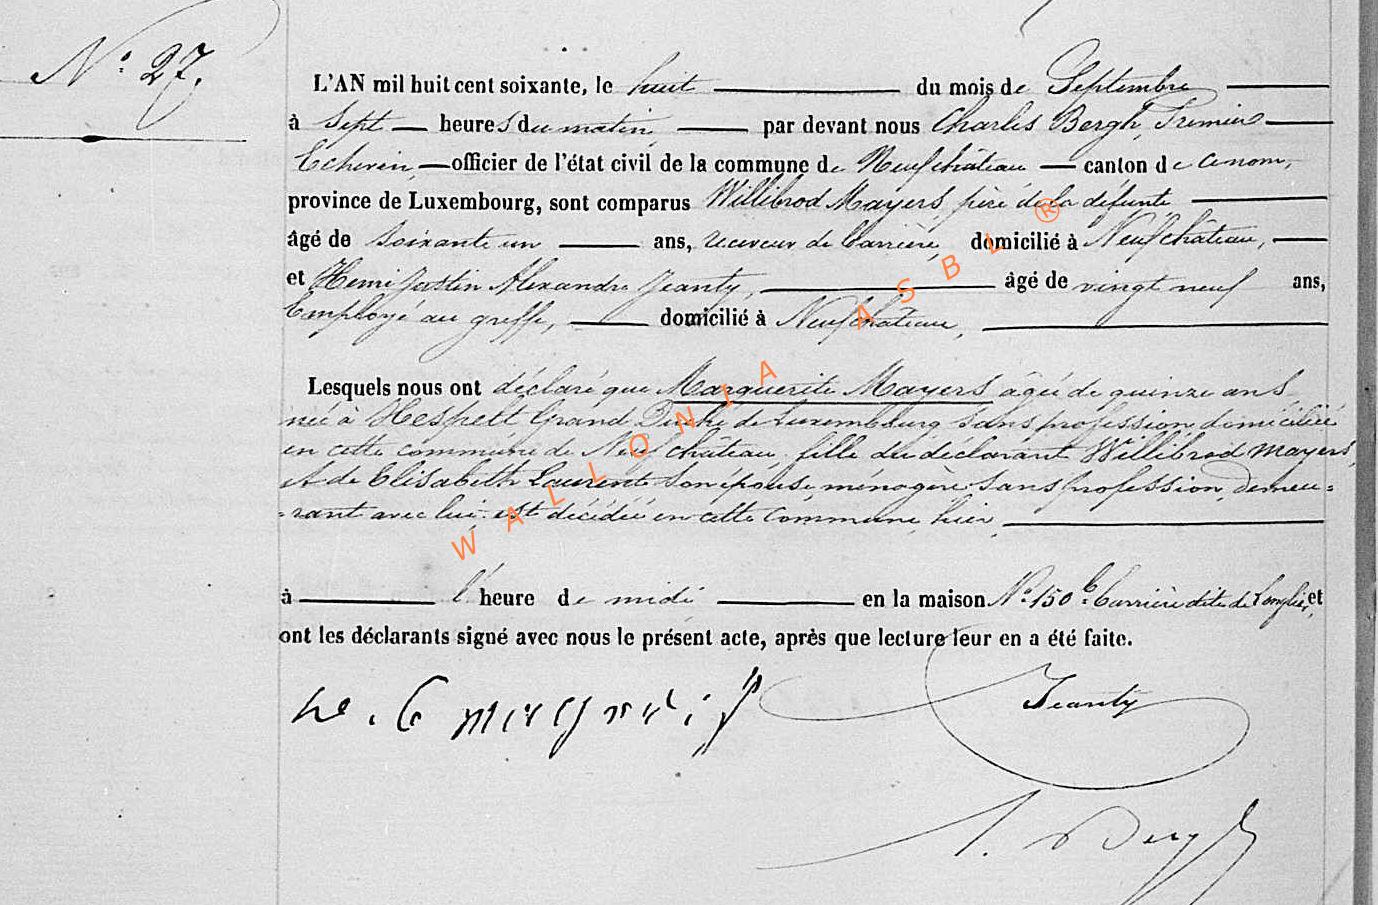 N° 27.
L'AN mil huit cent soixante, le huit du mois de Septembre
à Sept heures du matin, par devant nous Charles Bergh, Premier
Echevin, officier de l'état civil de la commune de Neufchâteau canton de ce nom,
province de Luxembourg, sont comparus Willibrod Mayers, père de la défunte
âgé de soixante un ans, receveur de barrière, domicilié à Neufchâteau,
et Henri Justin Alexandre Jeanty, âgé de vingt neuf ans,
Employé au greffe, domicilié à Neufchâteau,
Lesquels nous ont déclaré que Marguerite Mayers âgée de quinze ans
née à Grand Duché de Luxembourg sans profession domiciliée
en cette commune de Neufchâteau, fille du déclarant Willibrod Mayers,
et de Elisabeth Laurent son épouse, ménagère sans profession, demeu=
=rant avec lui, est décédée en cette commune, hier,
à l'heure de midi en la maison N° 150 Barrière dite de Longlier, et
ont les déclarants signé avec nous le présent acte, après que lecture leur en a été faite.
Jeanty
Bergh
WALLONIA ASBL ®